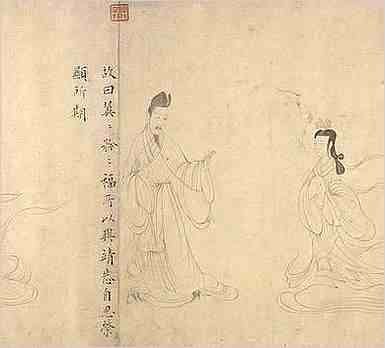 故曰翼〻矜〻福所以興靖恭自思榮
顯所期